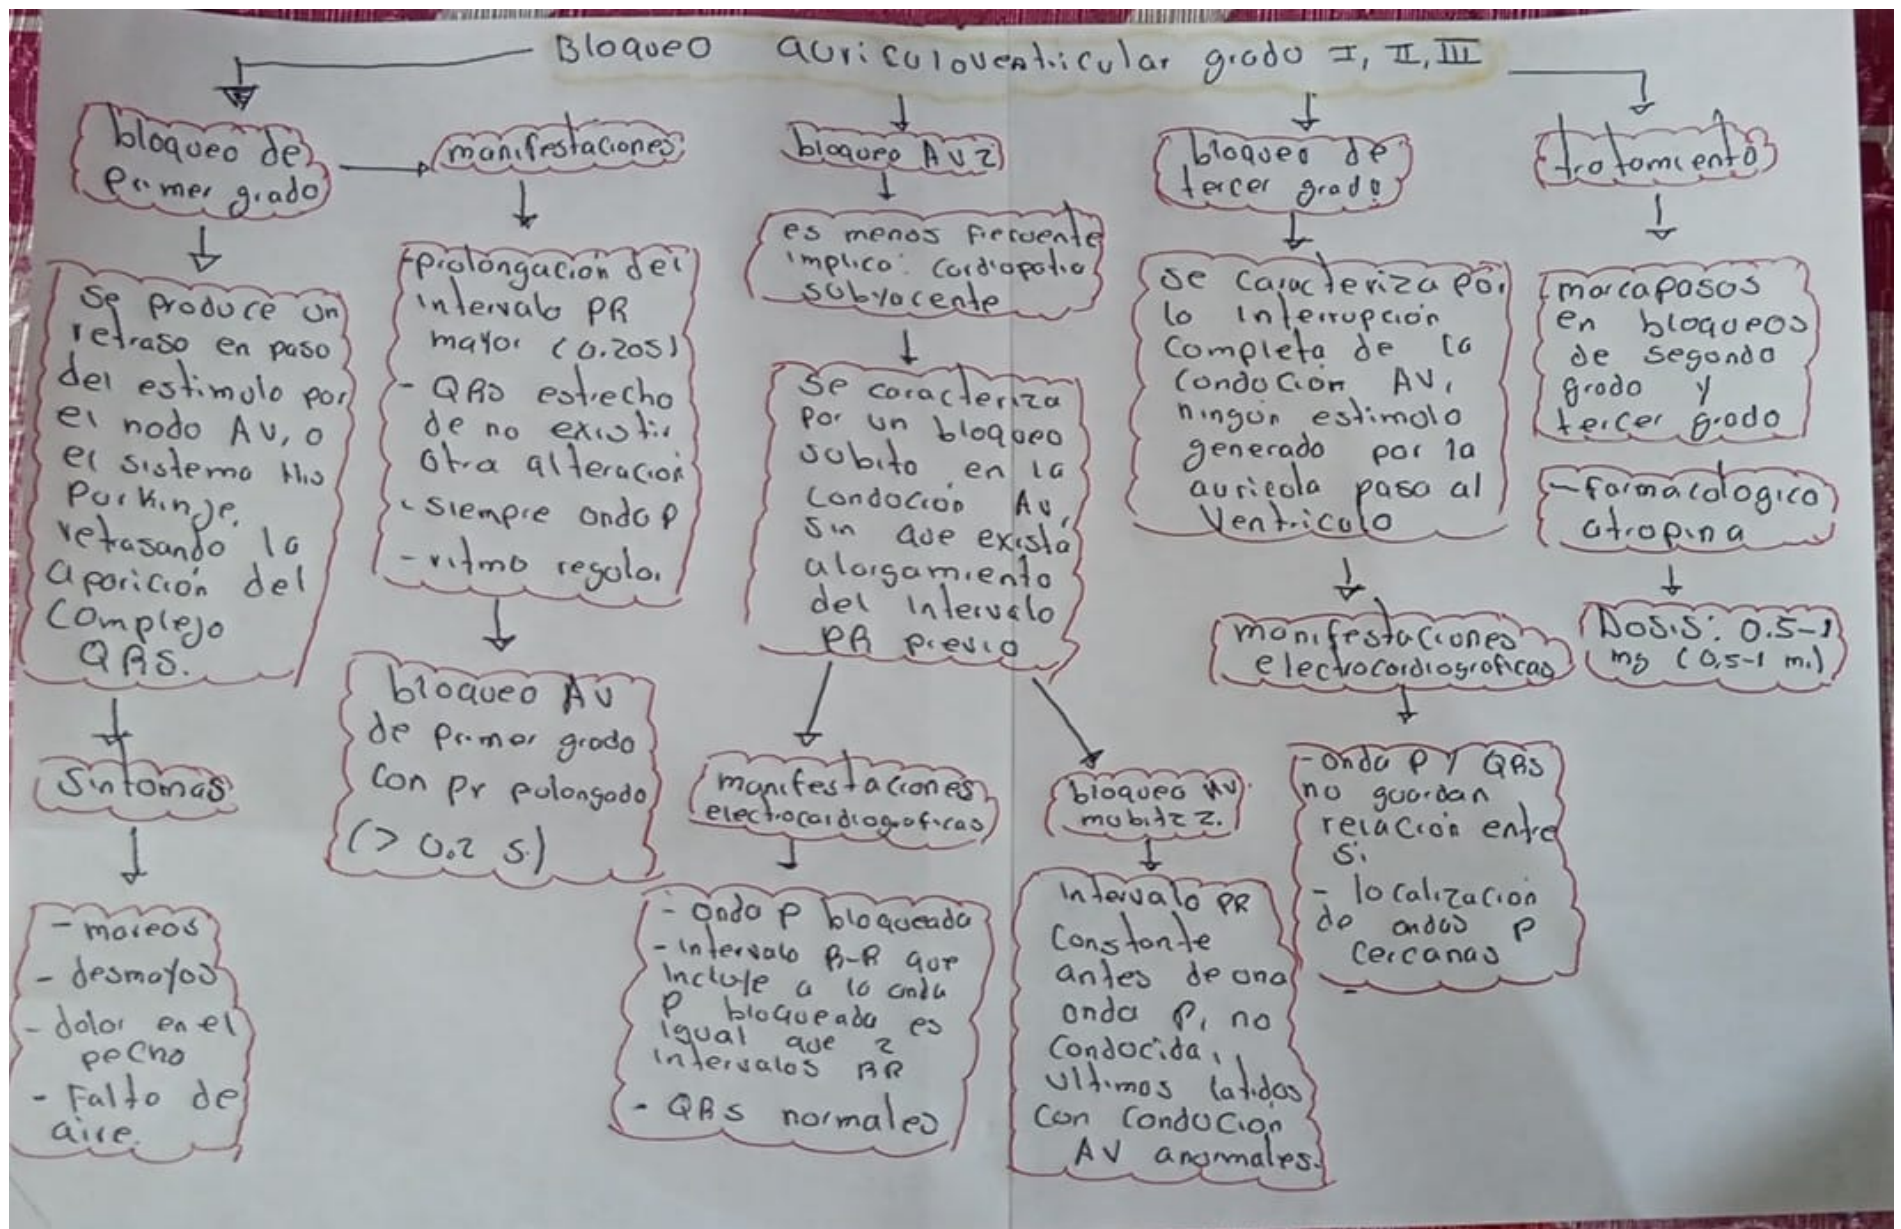 Bloqueo auriculoventricular grado I, II, III
bloqueo de
primer grado
Se produce un
retraso en paso
del estimulo por
el nodo AV, o
el sistema His
Purkinje,
retrasando la
aparición del
complejo
QRS.
Sintomas
- mareos
- desmayos
- dolor en el
pecho
- Falta de
aire.
manifestaciones:
-prolongación del
intervalo PR
mayor (0.20s)
- QRS estrecho
de no existir
otra alteración
- siempre onda P
- ritmo regular
bloqueo AV
de primer grado
con pr prolongado
(> 0.2 s.)
bloqueo AV 2
es menos frecuente
implica: cardiopatia
subyacente
se caracteriza
por un bloqueo
subito en la
conducción AV,
sin que exista
alargamiento
del intervalo
PR previo
manifestaciones
electrocardiograficas
- onda P bloqueada
- intervalo R-R que
incluye a la onda
P bloqueada es
igual que 2
intervalos RR
- QRS normales
bloqueo AV
mobitz 2.
Intervalo PR
constante
antes de una
onda P, no
conducida,
ultimos latidos
con conducción
AV anormales.
bloqueo de
tercer grado
se caracteriza por
la interrupción
completa de la
conducción AV,
ningún estimulo
generado por la
auricola pasa al
ventriculo
manifestaciones
electrocardiograficas
- onda P y QRS
no guardan
relación entre
si
- localización
de ondas P
cercanas
tratamiento
marcapasos
en bloqueos
de segundo
grado y
tercer grado
- farmacologico
atropina
Dosis: 0.5-1
mg (0.5-1 ml)